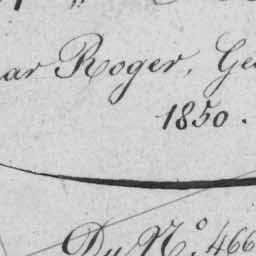 ar Roger, Ge
1850.
Du N.º 466